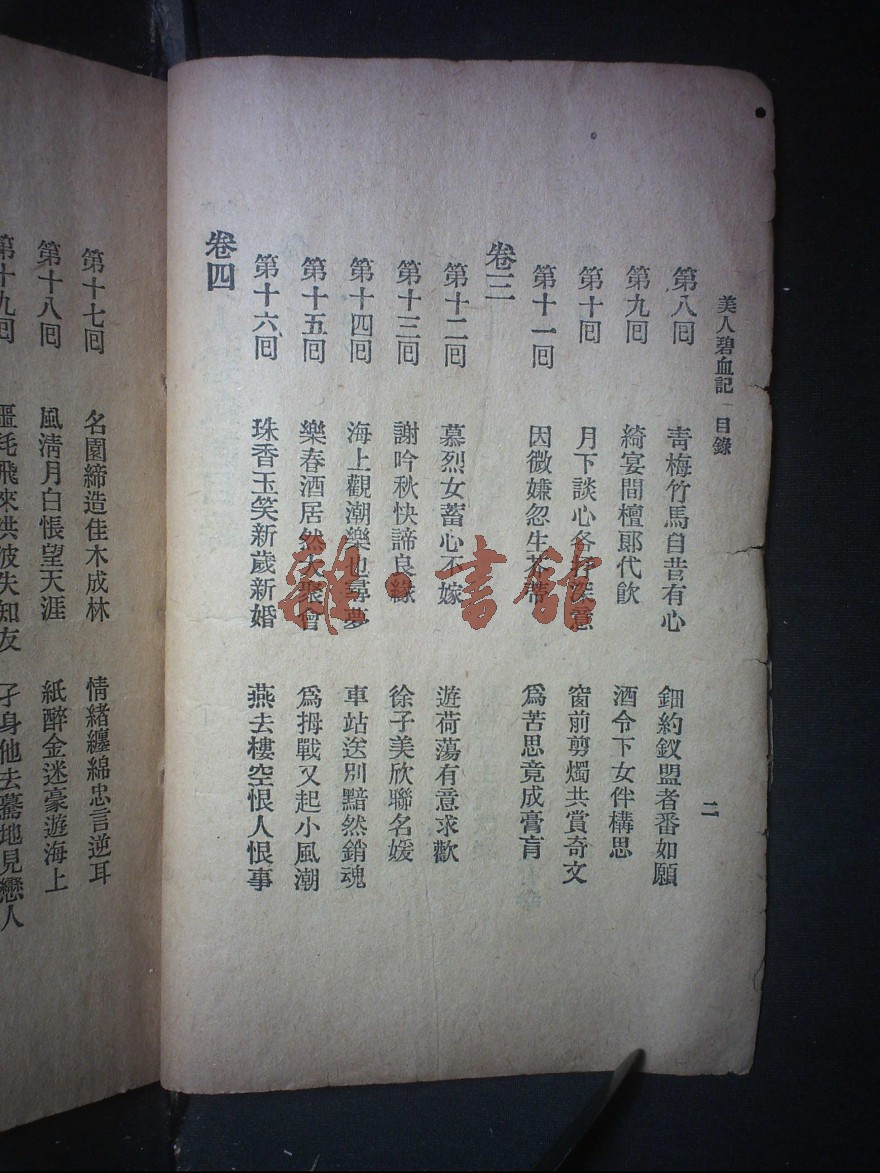 美人碧血記 目錄
二
第八回 青梅竹馬自昔有心 鈿約釵盟者番如願
第九回 綺宴間檀郞代飮 酒令下女伴構思
第十回 月下談心各存深意 窗前剪燭共賞奇文
第十一回 因微嫌忽生芥蒂 爲苦思竟成膏肓
卷三
第十二回 慕烈女蓄心不嫁 遊荷蕩有意求歡
第十三回 謝吟秋快諦良緣 徐子美欣聯名媛
第十四回 海上觀潮樂也尋夢 車站送別黯然銷魂
第十五回 樂春酒居然大聚會 爲拇戰又起小風潮
第十六回 珠香玉笑新歲新婚 燕去樓空恨人恨事
卷四
第十七回 名園締造佳木成林 情緒纏綿忠言逆耳
第十八回 風淸月白悵望天涯 紙醉金迷豪遊海上
第十九回 噩耗飛來洪波失知友 孑身他去驀地見戀人
雜·書館